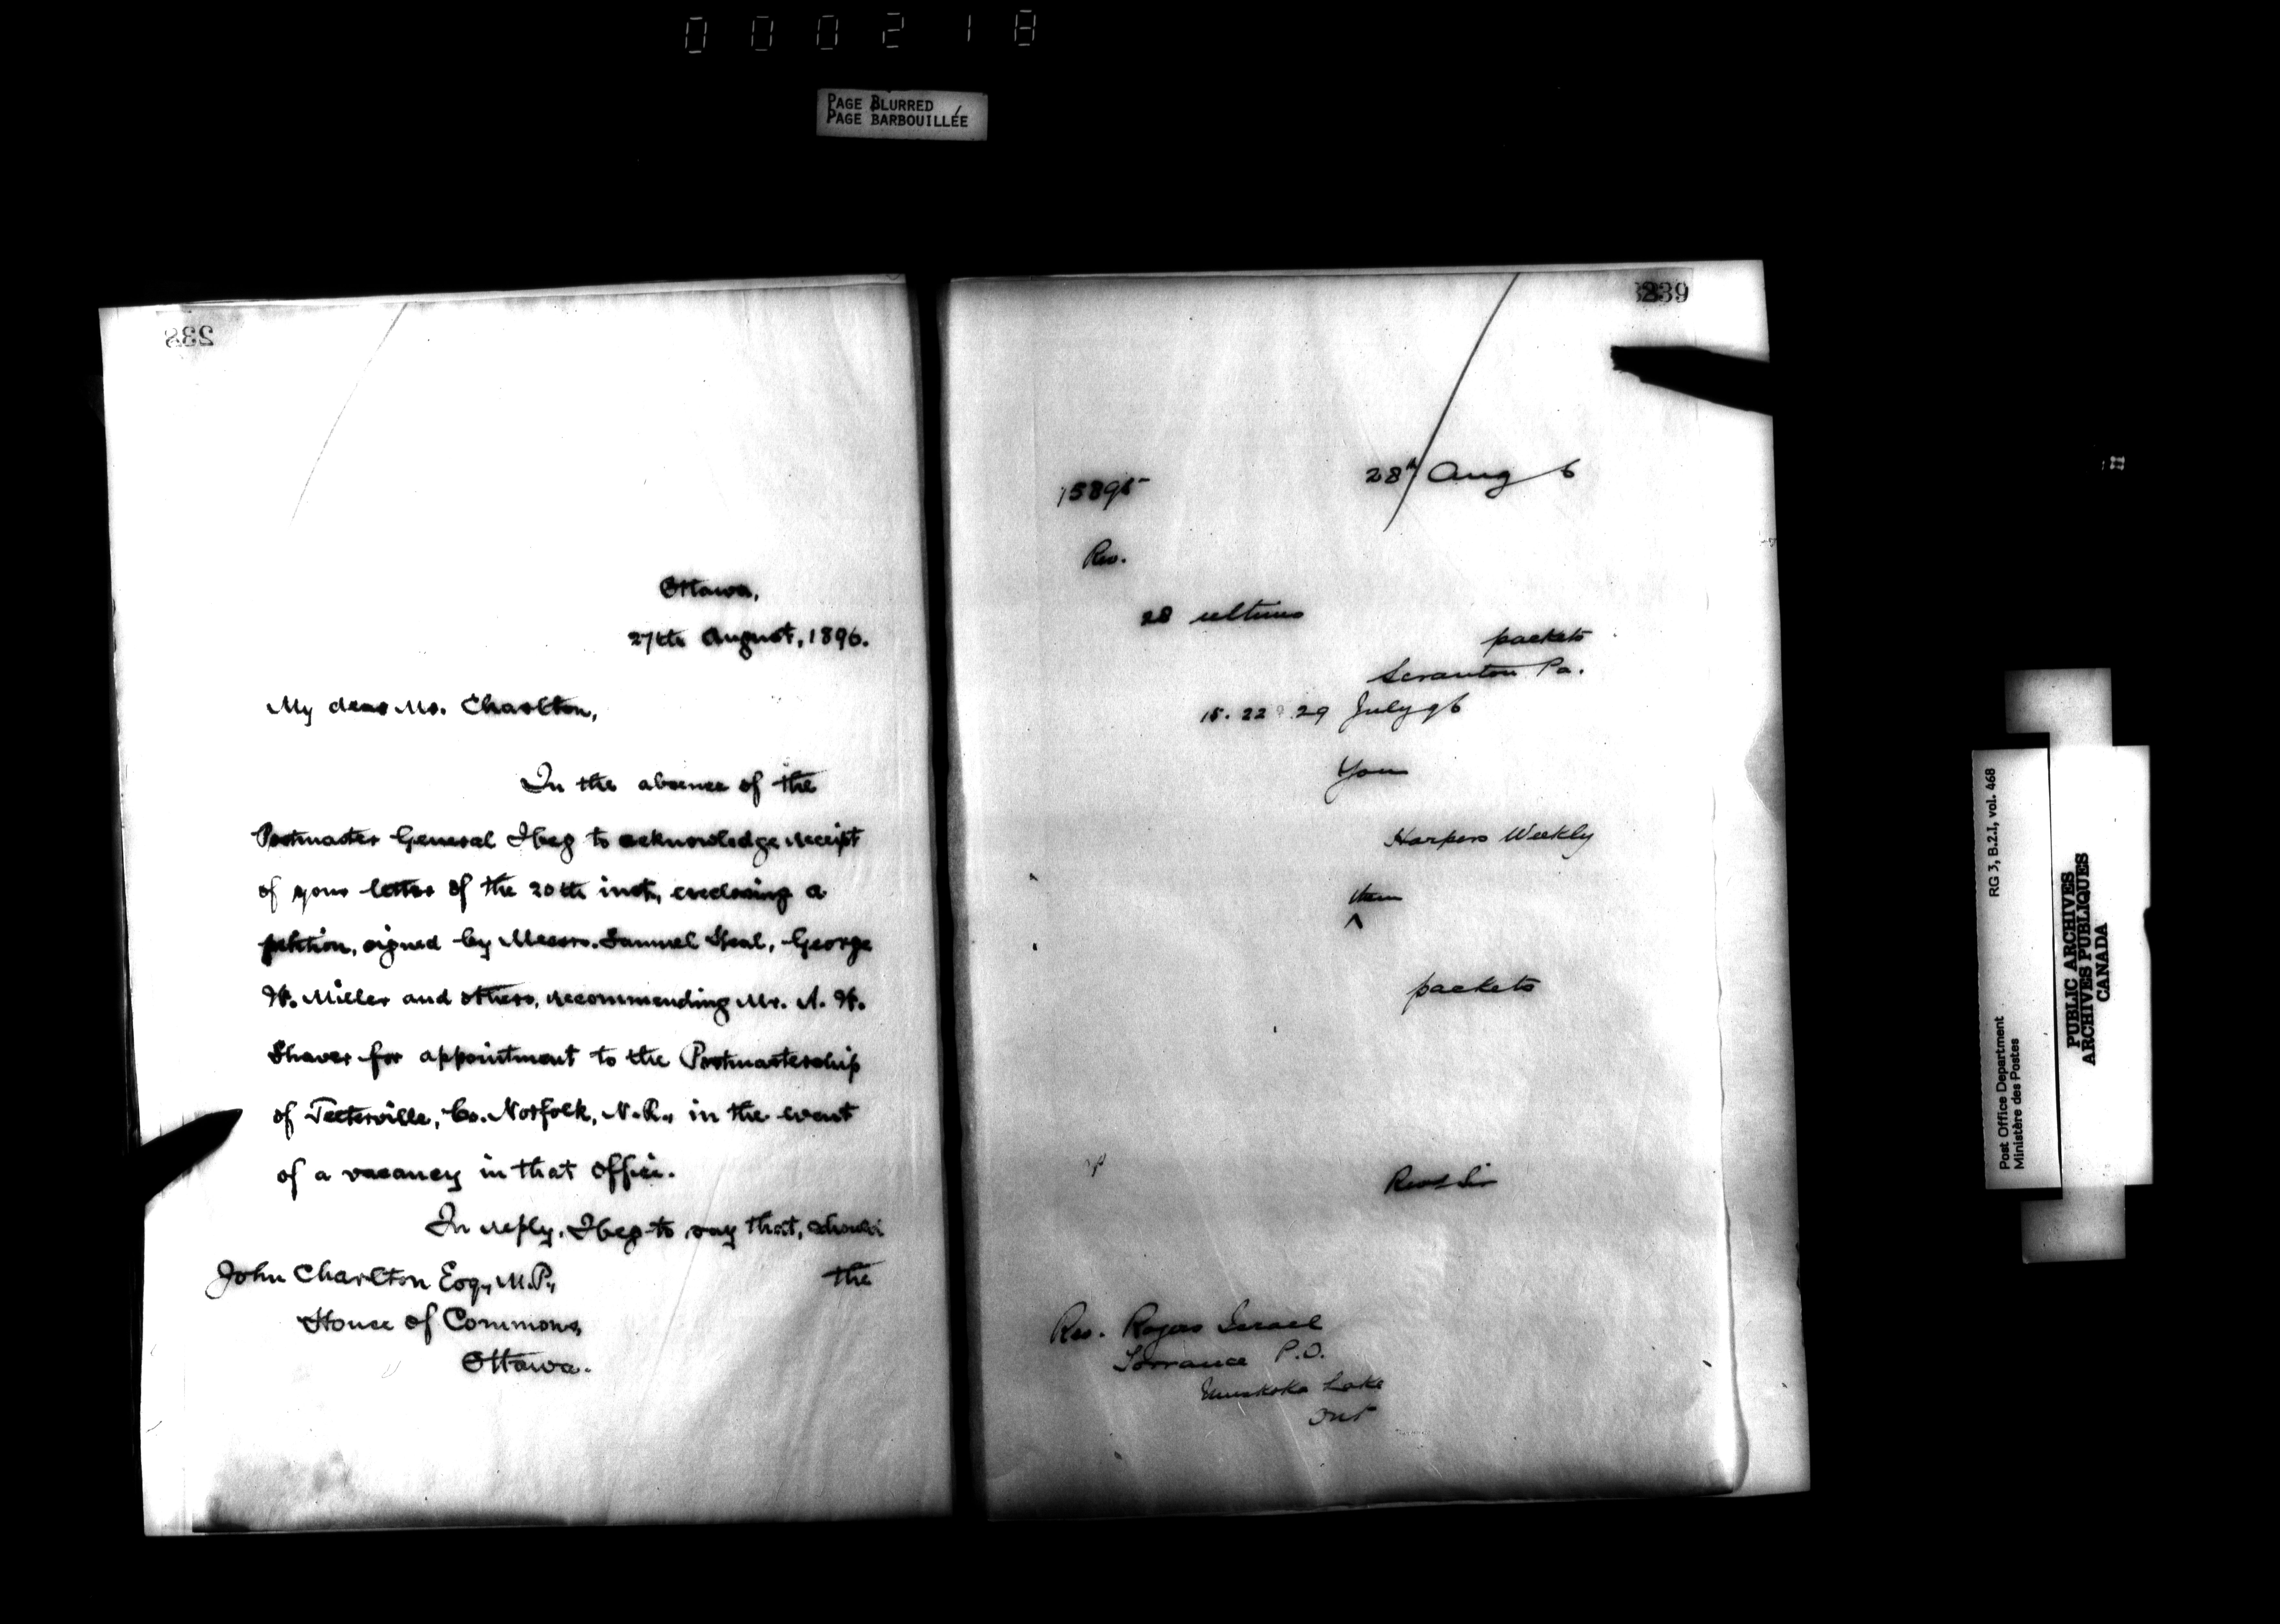 000218
PAGE BLURRED
PAGE BARBOUILLÉE
238
Ottawa,
27th August, 1896.
My dear Mr. Charlton,
In the absence of the
Postmaster General I beg to acknowledge receipt
of your letter of the 20th inst, enclosing a
petition, signed by Messrs. Samuel Heal, George
W. Miller and others, recommending Mr. A. W.
Shaver for appointment to the Postmastership
of Teeterville, Co. Norfolk, N.R., in the event
of a vacancy in that office.
In reply, I beg to say that, should
the
John Charlton Esq., M.P.,
House of Commons,
Ottawa.
239
28th Aug 6
15895
Rev.
28 ultimo
packets
Scranton Pa.
15. 22 & 29 July 96
You
Harpers Weekly
them
^
packets
Revd Sir
Rev. Rogers Israel
Torrance P.O.
Muskoka Lake
Ont
RG 3, B.2.1, vol. 468
Post Office Department
Ministère des Postes
PUBLIC ARCHIVES
ARCHIVES PUBLIQUES
CANADA